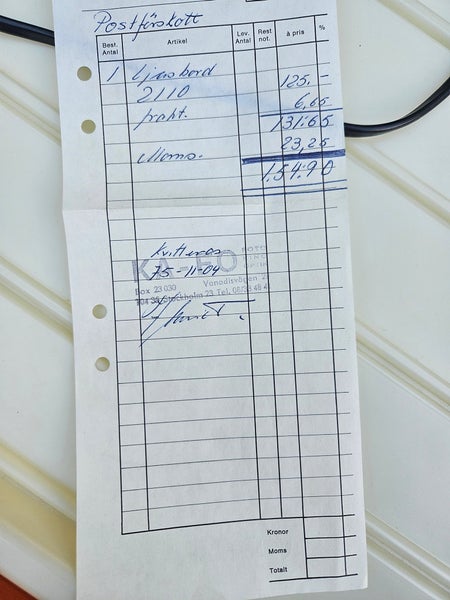 Postförskott
Best. Antal Artikel Lev. Antal Rest not. à pris %
1 Ljusbord 125.-
2110 6,65
frakt. 131:65
23,25
Moms. 154:90
Kvitteras
KA-FO FOTO
75-11-04
Box 23 030 Vanadisvägen 2
104 35 Stockholm 23 Tel. 08/
Kronor
Moms
Totalt